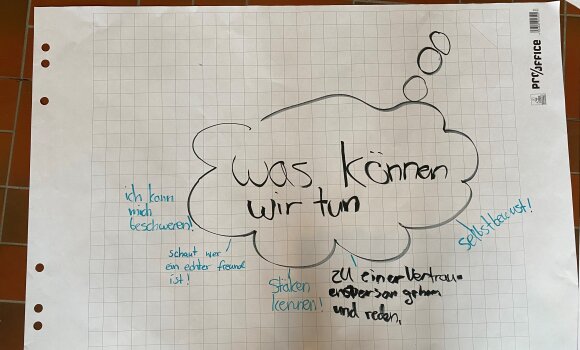 pro/office
was können
wir tun
ich kann
mich
beschweren!
schaut wer
ein echter freunde
ist!
Stäken
kennen!
zu einer Vertrau=
ensperson gehen
und reden.
selbstbewust!